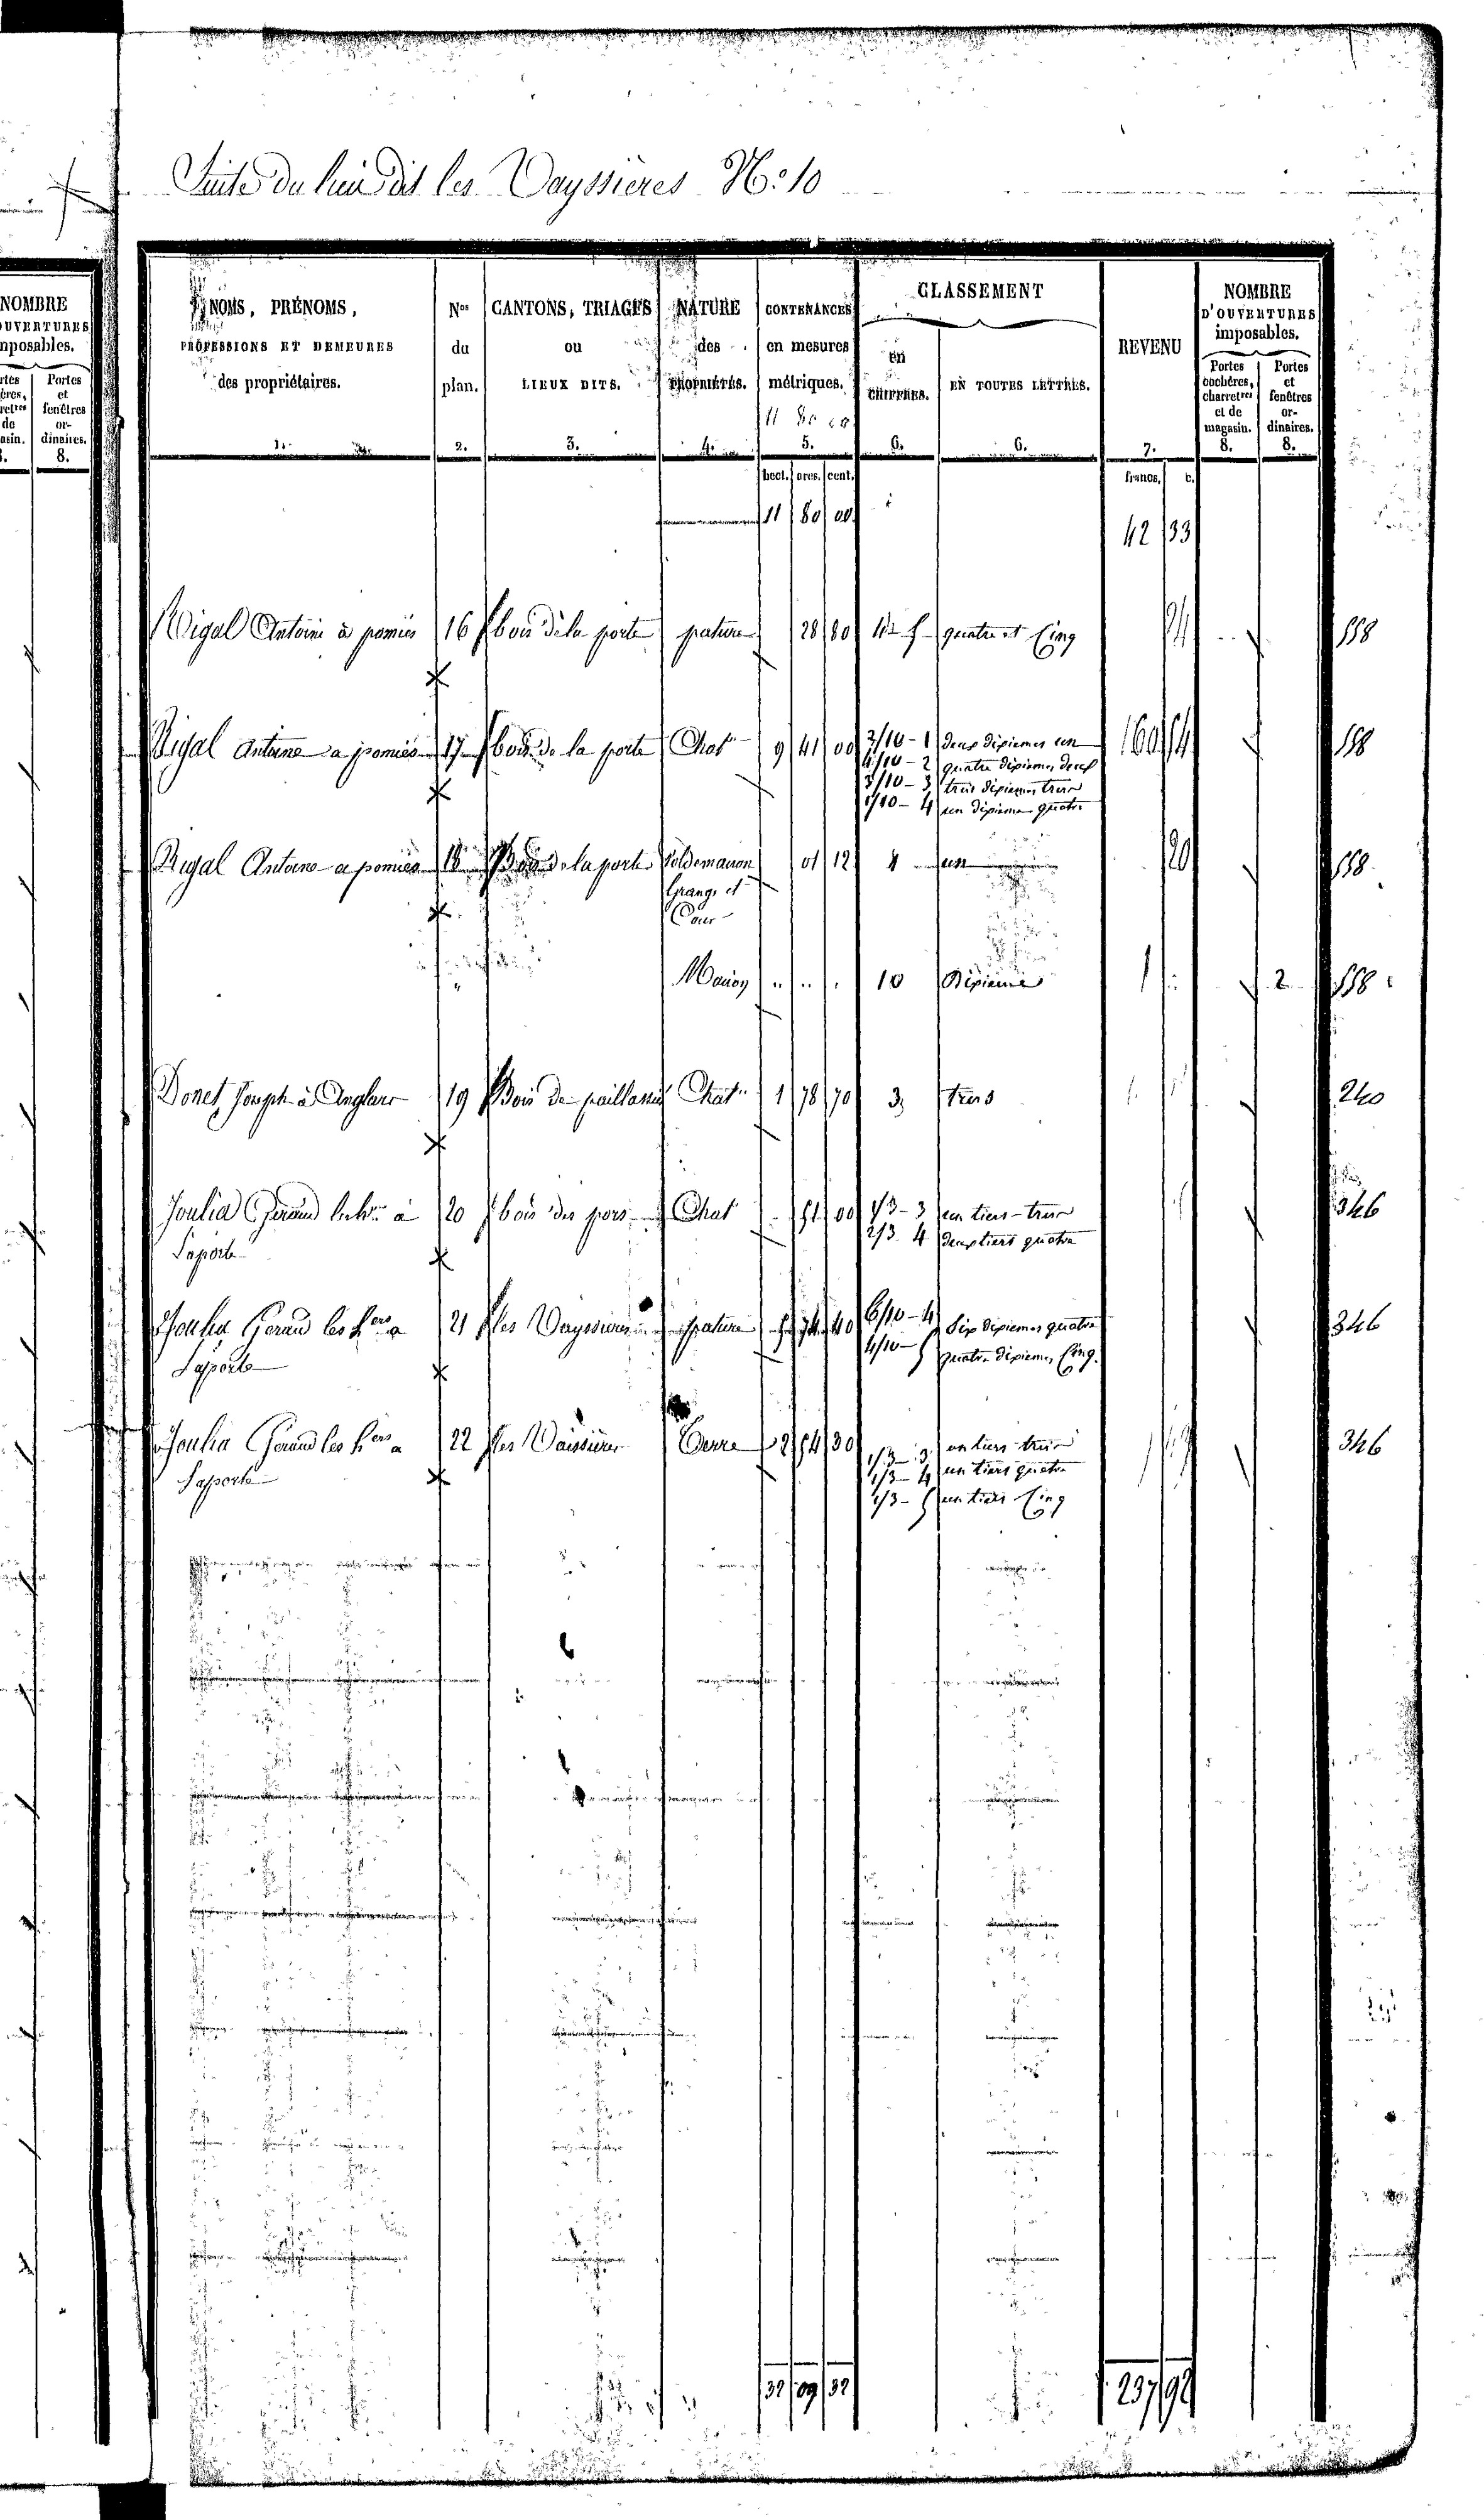 Suite du lieu dit les Vayssieres N.o 10
NOMS, PRÉNOMS, PROFESSIONS ET DEMEURES des propriétaires. 1.
Nos du plan. 2.
CANTONS, TRIAGES ou LIEUX DITS. 3.
NATURE des PROPRIÉTÉS. 4.
CONTENANCES en mesures métriques. 5.
CLASSEMENT
en CHIFFRES. 6.
EN TOUTES LETTRES. 6.
REVENU 7.
NOMBRE D'OUVERTURES imposables.
Portes cochères, charretres et de magasin. 8.
Portes et fenêtres ordinaires. 8.
hect. ares. cent. francs. c.
11 80 00 42 33
Rigal Antoine à pomiés 16 bois de la porte pature 28 80 4 - 5 quatre et Cinq 158
Rigal Antoine a pomiés 17 bois de la porte Chat 9 41 00 2/10 - 1 deux dixiemes un 160 158
4/10 - 2 quatre dixiemes deux
3/10 - 3 trois dixiemes trois
1/10 - 4 un dixieme quatre
Rigal Antoine a pomiés 18 Bois de la porte Sol de maison 01 12 1 un 20 158
Grange et
Cour
Maison 10 Dixieme 2 158
Donet Joseph à Anglars 19 Bois de paillassé Chat 1 78 70 3 trois 240
Joulia Geraud à 20 bois des Chat 51 00 1/3 - 3 un tiers - trois 346
Laporte 2/3 4 deux tiers quatre
Joulia Geraud les hers a 21 les Vayssieres pature 5 74 40 6/10 - 4 Six dixiemes quatre 346
Laporte 4/10 - 5 quatre dixiemes Cinq.
Joulia Geraud les hers a 22 les Vaissieres Terre 2 54 30 1/3 - 3 un tiers trois 346
Laporte 1/3 - 4 un tiers quatre
1/3 - 5 un tiers Cinq
32 09 32 237 92